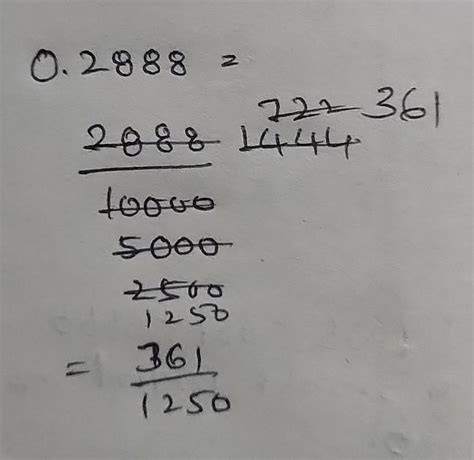 0.2888 =
722 361
2888 1444
10000
5000
2500
1250
= 361
1250